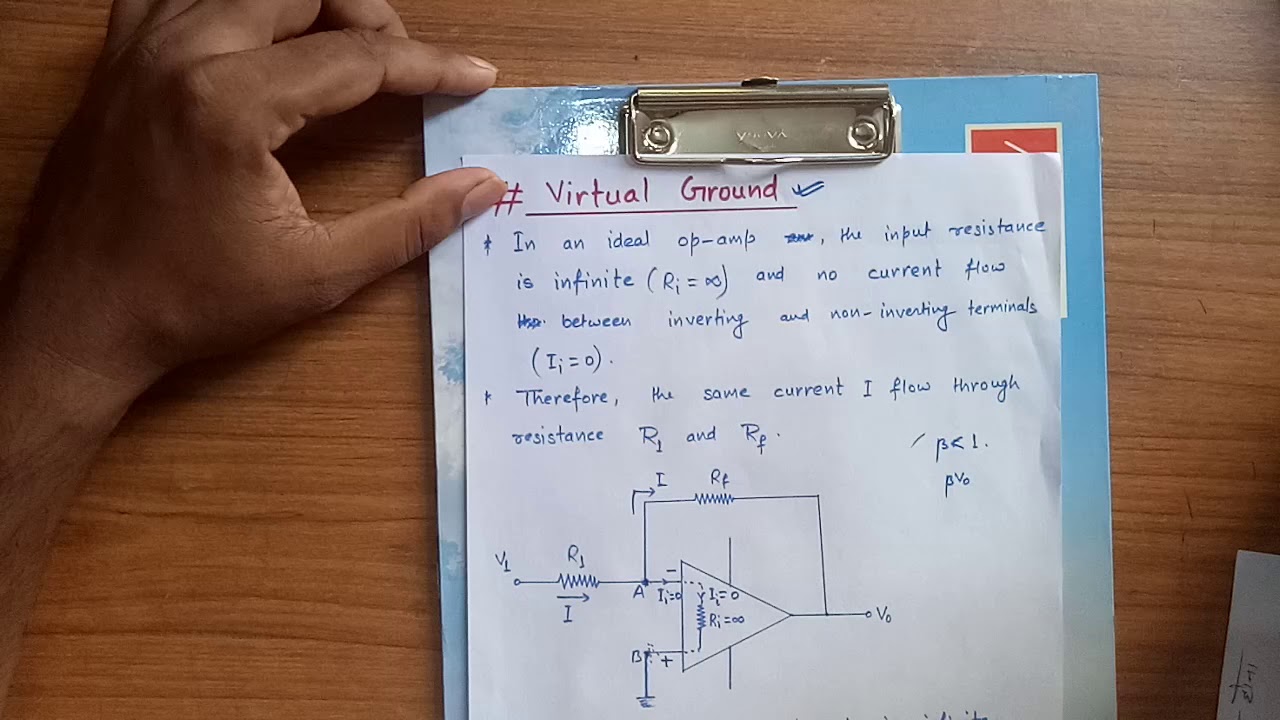 # Virtual Ground
* In an ideal op-amp, the input resistance
is infinite (Ri = ∞) and no current flow
between inverting and non-inverting terminals
(Ii = 0).
* Therefore, the same current I flow through
resistance R1 and Rf.
β < 1.
βVo
I
Rf
V1
R1
I
A
-
Ii=0
Ii=0
Ri=∞
Vo
B
+
infinite